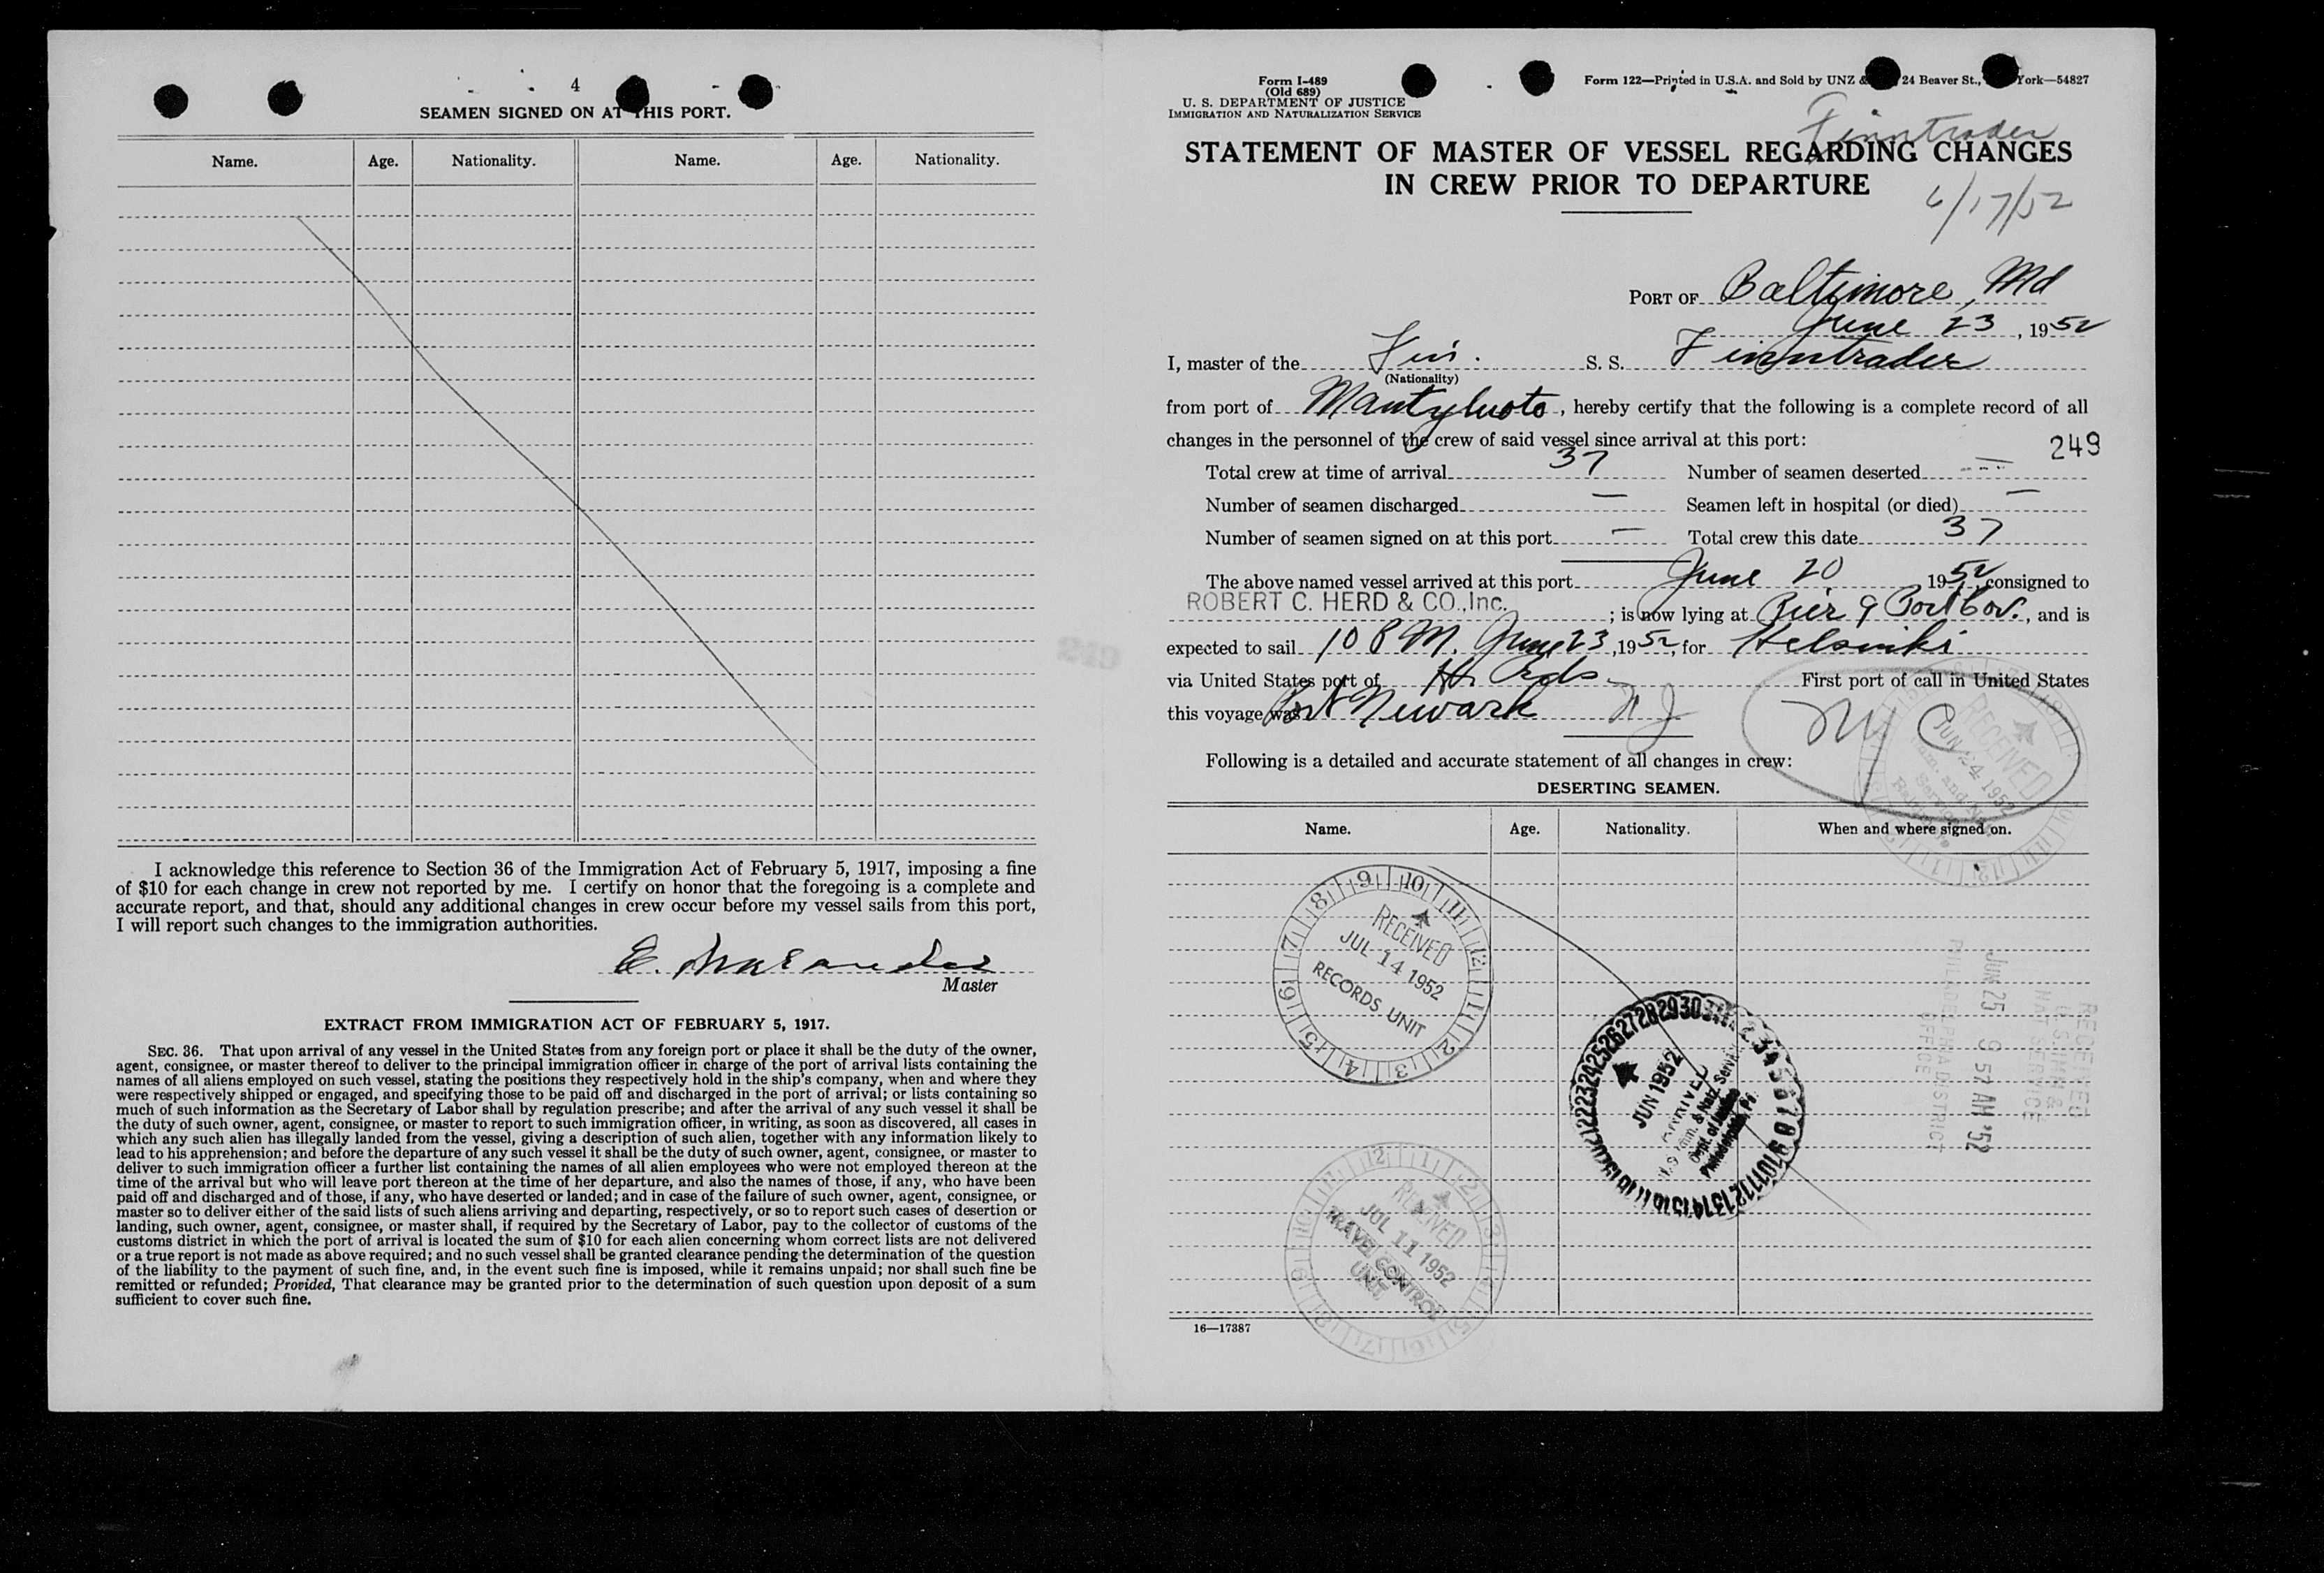 4
SEAMEN SIGNED ON AT THIS PORT.
Name. Age. Nationality. Name. Age. Nationality.
I acknowledge this reference to Section 36 of the Immigration Act of February 5, 1917, imposing a fine
of $10 for each change in crew not reported by me. I certify on honor that the foregoing is a complete and
accurate report, and that, should any additional changes in crew occur before my vessel sails from this port,
I will report such changes to the immigration authorities.
E.
Master
EXTRACT FROM IMMIGRATION ACT OF FEBRUARY 5, 1917.
SEC. 36. That upon arrival of any vessel in the United States from any foreign port or place it shall be the duty of the owner,
agent, consignee, or master thereof to deliver to the principal immigration officer in charge of the port of arrival lists containing the
names of all aliens employed on such vessel, stating the positions they respectively hold in the ship's company, when and where they
were respectively shipped or engaged, and specifying those to be paid off and discharged in the port of arrival; or lists containing so
much of such information as the Secretary of Labor shall by regulation prescribe; and after the arrival of any such vessel it shall be
the duty of such owner, agent, consignee, or master to report to such immigration officer, in writing, as soon as discovered, all cases in
which any such alien has illegally landed from the vessel, giving a description of such alien, together with any information likely to
lead to his apprehension; and before the departure of any such vessel it shall be the duty of such owner, agent, consignee, or master to
deliver to such immigration officer a further list containing the names of all alien employees who were not employed thereon at the
time of the arrival but who will leave port thereon at the time of her departure, and also the names of those, if any, who have been
paid off and discharged and of those, if any, who have deserted or landed; and in case of the failure of such owner, agent, consignee, or
master so to deliver either of the said lists of such aliens arriving and departing, respectively, or so to report such cases of desertion or
landing, such owner, agent, consignee, or master shall, if required by the Secretary of Labor, pay to the collector of customs of the
customs district in which the port of arrival is located the sum of $10 for each alien concerning whom correct lists are not delivered
or a true report is not made as above required; and no such vessel shall be granted clearance pending the determination of the question
of the liability to the payment of such fine, and, in the event such fine is imposed, while it remains unpaid; nor shall such fine be
remitted or refunded; Provided, That clearance may be granted prior to the determination of such question upon deposit of a sum
sufficient to cover such fine.
Form I-489
(Old 689)
U. S. DEPARTMENT OF JUSTICE
IMMIGRATION AND NATURALIZATION SERVICE
Form 122—Printed in U.S.A. and Sold by UNZ & 24 Beaver St., York—54827
Finntrader
STATEMENT OF MASTER OF VESSEL REGARDING CHANGES
IN CREW PRIOR TO DEPARTURE
6/17/52
PORT OF Baltimore, Md
June 23, 1952
I, master of the Fin. S. S. Finntrader
(Nationality)
from port of Mantyluoto, hereby certify that the following is a complete record of all
changes in the personnel of the crew of said vessel since arrival at this port:
249
Total crew at time of arrival 37 Number of seamen deserted —
Number of seamen discharged — Seamen left in hospital (or died) —
Number of seamen signed on at this port — Total crew this date 37
The above named vessel arrived at this port June 20 1952, consigned to
ROBERT C. HERD & CO., Inc. ; is now lying at Pier 9 Port Cov., and is
expected to sail 10 PM. June 23, 1952, for Helsinki
via United States port of H. Rds First port of call in United States
this voyage was Port Newark NJ
M C
RECEIVED
JUN 24 1952
Following is a detailed and accurate statement of all changes in crew:
DESERTING SEAMEN.
Name. Age. Nationality. When and where signed on.
RECEIVED
JUL 14 1952
RECORDS UNIT
JUN 1952
ARRIVED
U.S. Imm. & Natz. Service
Dept. of Justice
Philadelphia, Pa.
RECEIVED
U.S. IMM &
NAT SERVICE
JUN 25 9 51 AM '52
PHILADELPHIA DISTRICT
OFFICE
RECEIVED
JUL 11 1952
TRAVEL CONTROL
UNIT
16—17387